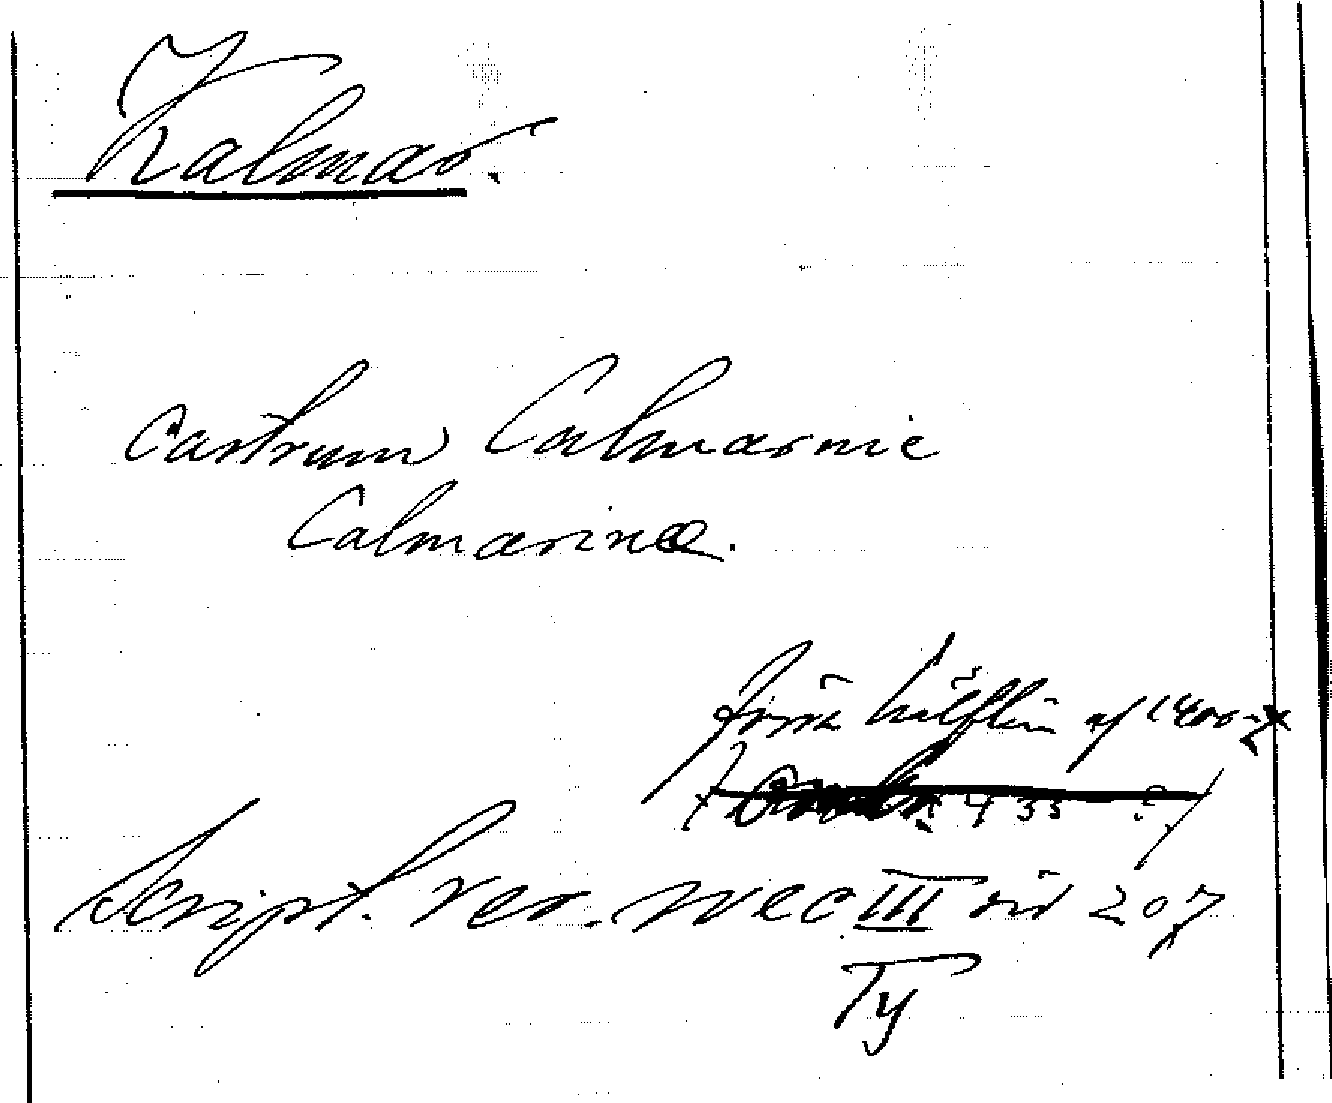 Kalmar.
Castrum Calmarnie
Calmarinæ.
förra hälften af 1400-t
1435 - ?)
Script. rer. svec III sid 207
Ty